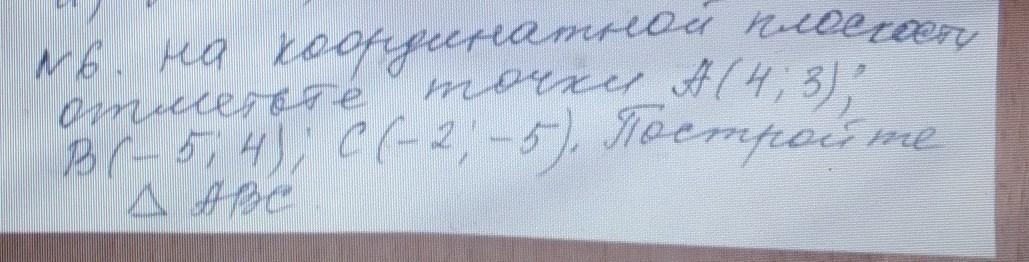 №6. на координатной плоскости
отметьте точки А(4; 3);
В(-5; 4); С(-2; -5). Постройте
△ АВС